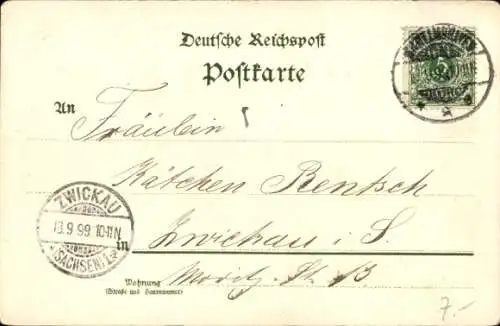 Deutsche Reichspost
Postkarte
5
An
Fräulein
Kätchen Rentsch
ZWICKAU
13.9.99.10-11N.
(SACHSEN) 1
in
Zwickau i. S.
Wohnung
(Straße und Hausnummer)
Moritz-Str. 13
7.-